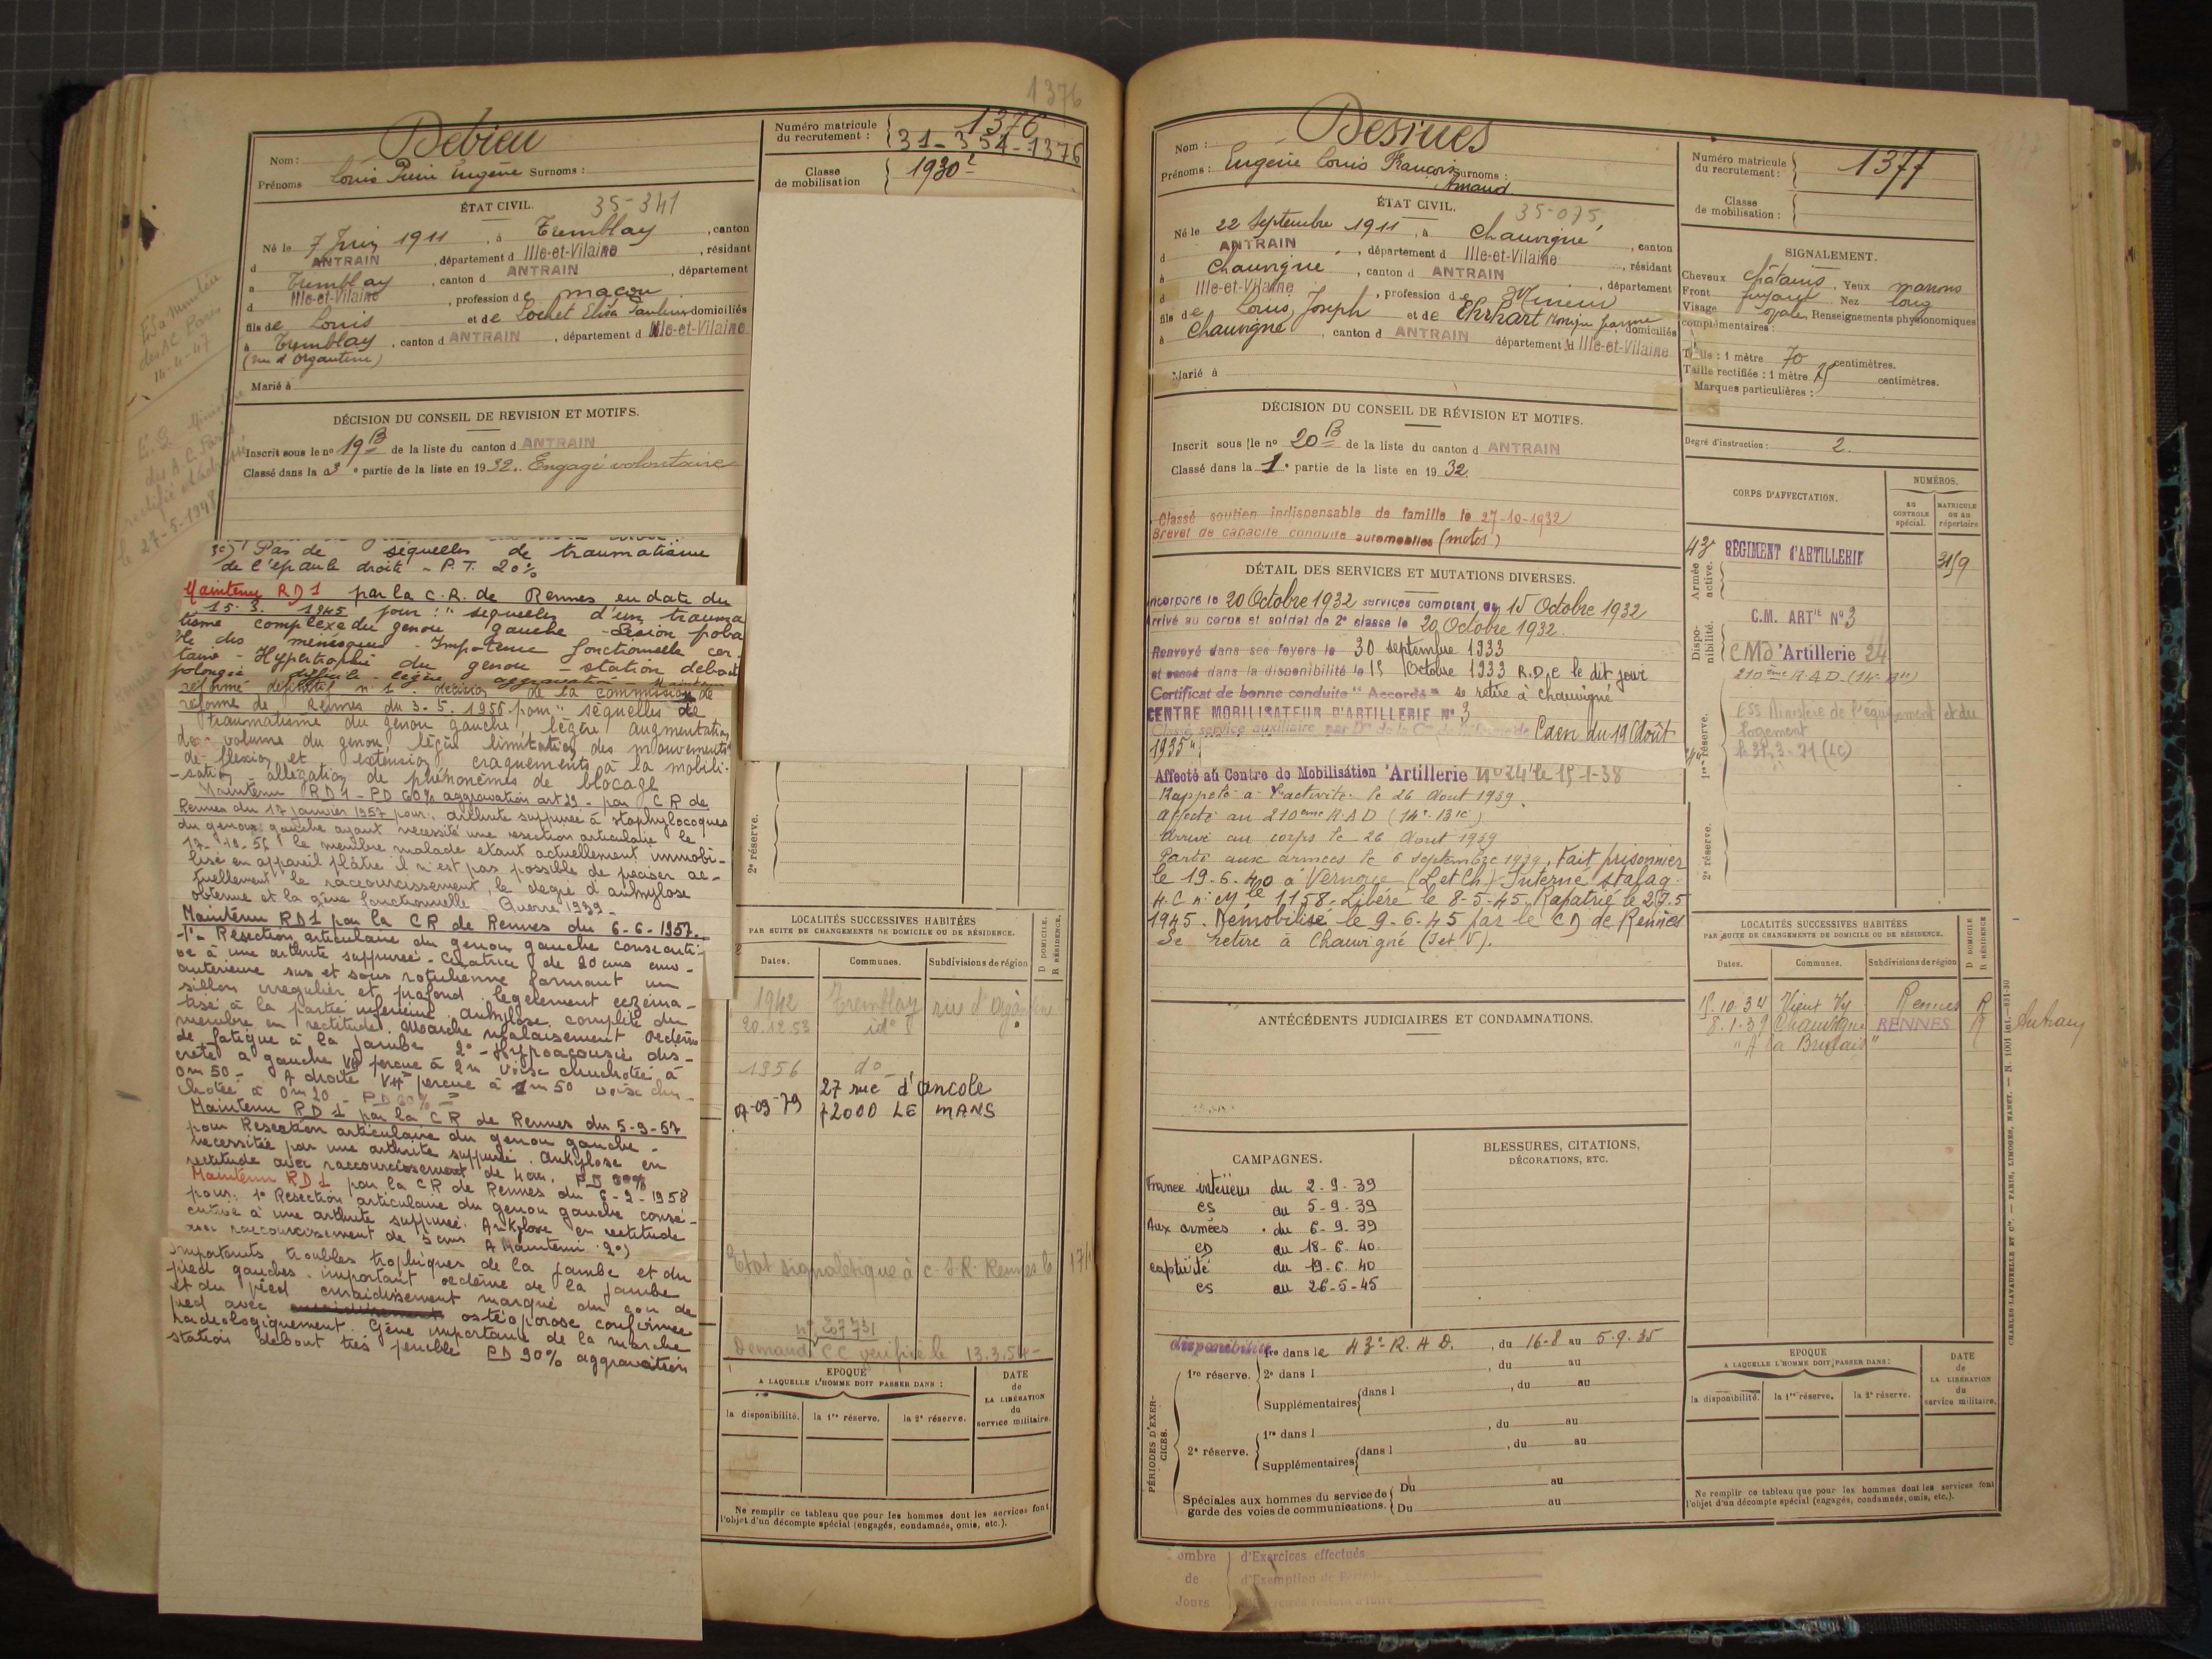 1376
Nom : Debieu
Prénoms Louis Pierre Eugène Surnoms :
Numéro matricule du recrutement : 1376
31-354-1376
Classe de mobilisation 1930
ÉTAT CIVIL. 35-341
Né le 7 Juin 1911, à Tremblay, canton
d ANTRAIN, département d Ille-et-Vilaine, résidant
à Tremblay, canton d ANTRAIN, département
d Ille-et-Vilaine, profession de maçon
fils de Louis et de Lochet Elisa domiciliés
à Tremblay, canton d ANTRAIN, département d Ille-et-Vilaine
Marié à
DÉCISION DU CONSEIL DE REVISION ET MOTIFS.
Inscrit sous le no 19 B de la liste du canton d ANTRAIN
Classé dans la 3e partie de la liste en 1932. Engagé volontaire
14-4-47
le 27-5-1948
3c) Pas de séquelles de traumatisme
de l'épaule droite - P.T. 20%
Maintenu RD1 par la C.R. de Rennes en date du
15.3.1945 pour : "séquelles d'un trauma
tisme complexe du genou gauche - Lésion proba
ble des ménisques - Impotence fonctionnelle cer-
taine - Hypertrophie du genou - station debout
prolongée difficile - légère aggravation - Maintenu
réformé définitif n° 1. décision de la commission de
réforme de Rennes du 3-5.1955 pour "séquelles de
traumatisme du genou gauche, légère augmentation
de volume du genou, légère limitation des mouvements
de flexion et extension, craquements à la mobili-
-sation allégation de phénomènes de blocage
Maintenu RD1 - PD 60% aggravation art 29 - par CR de
Rennes du 17 janvier 1957 pour : arthrite suppurée à staphylocoques
du genou gauche ayant nécessité une résection articulaire le
17-10-56 le membre malade étant actuellement immobi-
lisé en appareil plâtré il n'est pas possible de préciser ac-
tuellement le raccourcissement, le degré d'ankylose
obtenue et la gêne fonctionnelle - Guerre 1939 -
Maintenu RD1 par la CR de Rennes du 6-6-1957.
-1°- Résection articulaire du genou gauche consécuti-
ve à une arthrite suppurée - Cicatrice de 20 cms env-
antérieure sus et sous rotulienne formant un
sillon irrégulier et profond légèrement eczéma-
tisé à la partie inférieure. Ankylose complète du
membre en rectitude. Marche malaisément Oedème
de fatigue à la jambe 2°- Hypoacousie dis-
crète à gauche VH perçue à 2m voix chuchotée à
0m50 - A droite VH perçue à 1m50 voix chu-
chotée à 0m20 - PD 60%
Maintenu RD1 par la CR de Rennes du 5-9-57
pour Résection articulaire du genou gauche -
nécessitée par une arthrite suppurée. Ankylose en
rectitude avec raccourcissement de 4 cm.
Maintenu RD1 par la CR de Rennes du 6-2-1958
pour : 1° Résection articulaire du genou gauche consé-
cutive à une arthrite suppurée. Ankylose en rectitude
avec raccourcissement de 5 cms A Maintenir 2°)
importants troubles trophiques de la jambe et du
pied gauches. important oedème de la jambe
et du pied enraidissement marqué du cou de
pied avec ostéoporose confirmée
radiologiquement. Gêne importante de la marche
station debout très pénible PD 90% aggravation
2e réserve.
LOCALITÉS SUCCESSIVES HABITÉES
PAR SUITE DE CHANGEMENTS DE DOMICILE OU DE RÉSIDENCE.
D DOMICILE. R RÉSIDENCE.
Dates. Communes. Subdivisions de région
1942 Tremblay
20.12.53 id°
1956 d°
27 rue d'arcole
07-09-79 72000 LE MANS
Etat signalétique à C.S.R. Rennes le
n° 207731
Demande CC vérifiée le 13.3.54 -
EPOQUE
A LAQUELLE L'HOMME DOIT PASSER DANS :
DATE de LA LIBÉRATION du service militaire.
la disponibilité. la 1re réserve. la 2e réserve.
Ne remplir ce tableau que pour les hommes dont les services font
l'objet d'un décompte spécial (engagés, condamnés, omis, etc.).
Nom : Desiues
Prénoms : Eugène Louis François Surnoms :
Armand
Numéro matricule du recrutement : 1377
Classe de mobilisation :
ÉTAT CIVIL. 35-075
Né le 22 Septembre 1911, à Chauvigné, canton
d ANTRAIN, département d Ille-et-Vilaine, résidant
à Chauvigné, canton d ANTRAIN, département
d Ille-et-Vilaine, profession de Mineur
fils de Louis, Joseph et de Ehrhart domiciliés
à Chauvigné, canton d ANTRAIN département d Ille-et-Vilaine
Marié à
SIGNALEMENT.
Cheveux châtains, Yeux marrons
Front fuyant Nez long
Visage ovale, Renseignements physionomiques
complémentaires :
Taille : 1 mètre 70 centimètres.
Taille rectifiée : 1 mètre 75 centimètres.
Marques particulières :
Degré d'instruction : 2.
DÉCISION DU CONSEIL DE RÉVISION ET MOTIFS.
Inscrit sous le no 20 B de la liste du canton d ANTRAIN
Classé dans la 1e partie de la liste en 1932
Classé soutien indispensable de famille le 27-10-1932
Brevet de capacité conduite automobiles (motos)
CORPS D'AFFECTATION.
NUMÉROS.
AU CONTROLE spécial. MATRICULE OU AU répertoire
Armée active. 43 RÉGIMENT d'ARTILLERIE
C.M. ARTIE N°3
Disponibilité. CMd'Artillerie 24
210ème R.A.D. (14e Bie)
ESS Ministère de l'équipement et du
logement
le 31-3-71 (LC)
1re réserve.
2e réserve.
DÉTAIL DES SERVICES ET MUTATIONS DIVERSES.
Incorporé le 20 Octobre 1932 services comptant du 15 Octobre 1932
Arrivé au corps et soldat de 2e classe le 20 Octobre 1932.
Renvoyé dans ses foyers le 30 septembre 1933
et passé dans la disponibilité le 15 Octobre 1933 R.D.C le dit jour
Certificat de bonne conduite "Accordé" se retire à Chauvigné
CENTRE MOBILISATEUR D'ARTILLERIE N° 3
Classé service auxiliaire par Caen du 19 Août
1935"
Affecté au Centre de Mobilisation Artillerie n° 24 le 15-1-38
Rappelé à l'activité le 26 Aout 1939.
affecté au 210ème R.A.D (14e Bie)
Arrivé au corps le 26 Aout 1939
Parti aux armées le 6 septembre 1939, Fait prisonnier
le 19.6.40 à Vernou (L et Ch) Interné stalag
4.C n° Mle 1158. Libéré le 8-5-45 Rapatrié le 27.5
1945. Démobilisé le 9-6-45 par le CD de Rennes
Se retire à Chauvigné (I et V).
LOCALITÉS SUCCESSIVES HABITÉES
PAR SUITE DE CHANGEMENTS DE DOMICILE OU DE RÉSIDENCE.
D DOMICILE R RÉSIDENCE
Dates. Communes. Subdivisions de région
15.10.34 Vieux Vy Rennes R
8.1.37 Chauvigné RENNES R
ANTÉCÉDENTS JUDICIAIRES ET CONDAMNATIONS.
CAMPAGNES.
BLESSURES, CITATIONS,
DÉCORATIONS, ETC.
France intérieur du 2-9-39
CS au 5-9-39
Aux armées du 6-9-39
CD au 18-6-40
captivité du 19-6-40
CS au 26-5-45
PÉRIODES D'EXERCICES.
disponibilité
1re réserve. 1re dans le 43e R.A.D., du 16-8 au 5.9.35
2e dans l , du au
Supplémentaires dans l , du au
, du au
2e réserve. 1re dans l , du au
Supplémentaires dans l , du au
Spéciales aux hommes du service de Du au
garde des voies de communications. Du au
EPOQUE
A LAQUELLE L'HOMME DOIT PASSER DANS :
DATE de LA LIBÉRATION du service militaire.
la disponibilité. la 1re réserve. la 2e réserve.
Ne remplir ce tableau que pour les hommes dont les services font
l'objet d'un décompte spécial (engagés, condamnés, omis, etc.).
CHARLES-LAVAUZELLE ET Cie. — PARIS, LIMOGES, NANCY.
Nombre d'Exercices effectués
de d'Exemption de Période
Jours